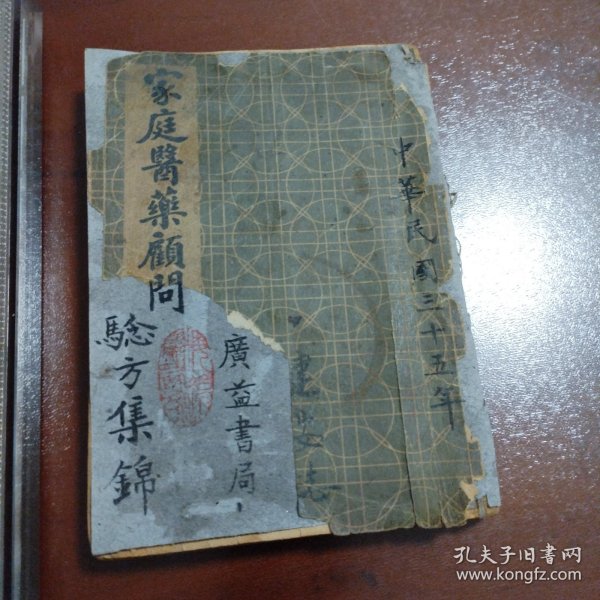 中華民國三十五年
家庭醫藥顧問
驗方集錦
廣益書局
孔夫子旧书网
www.kongfz.com